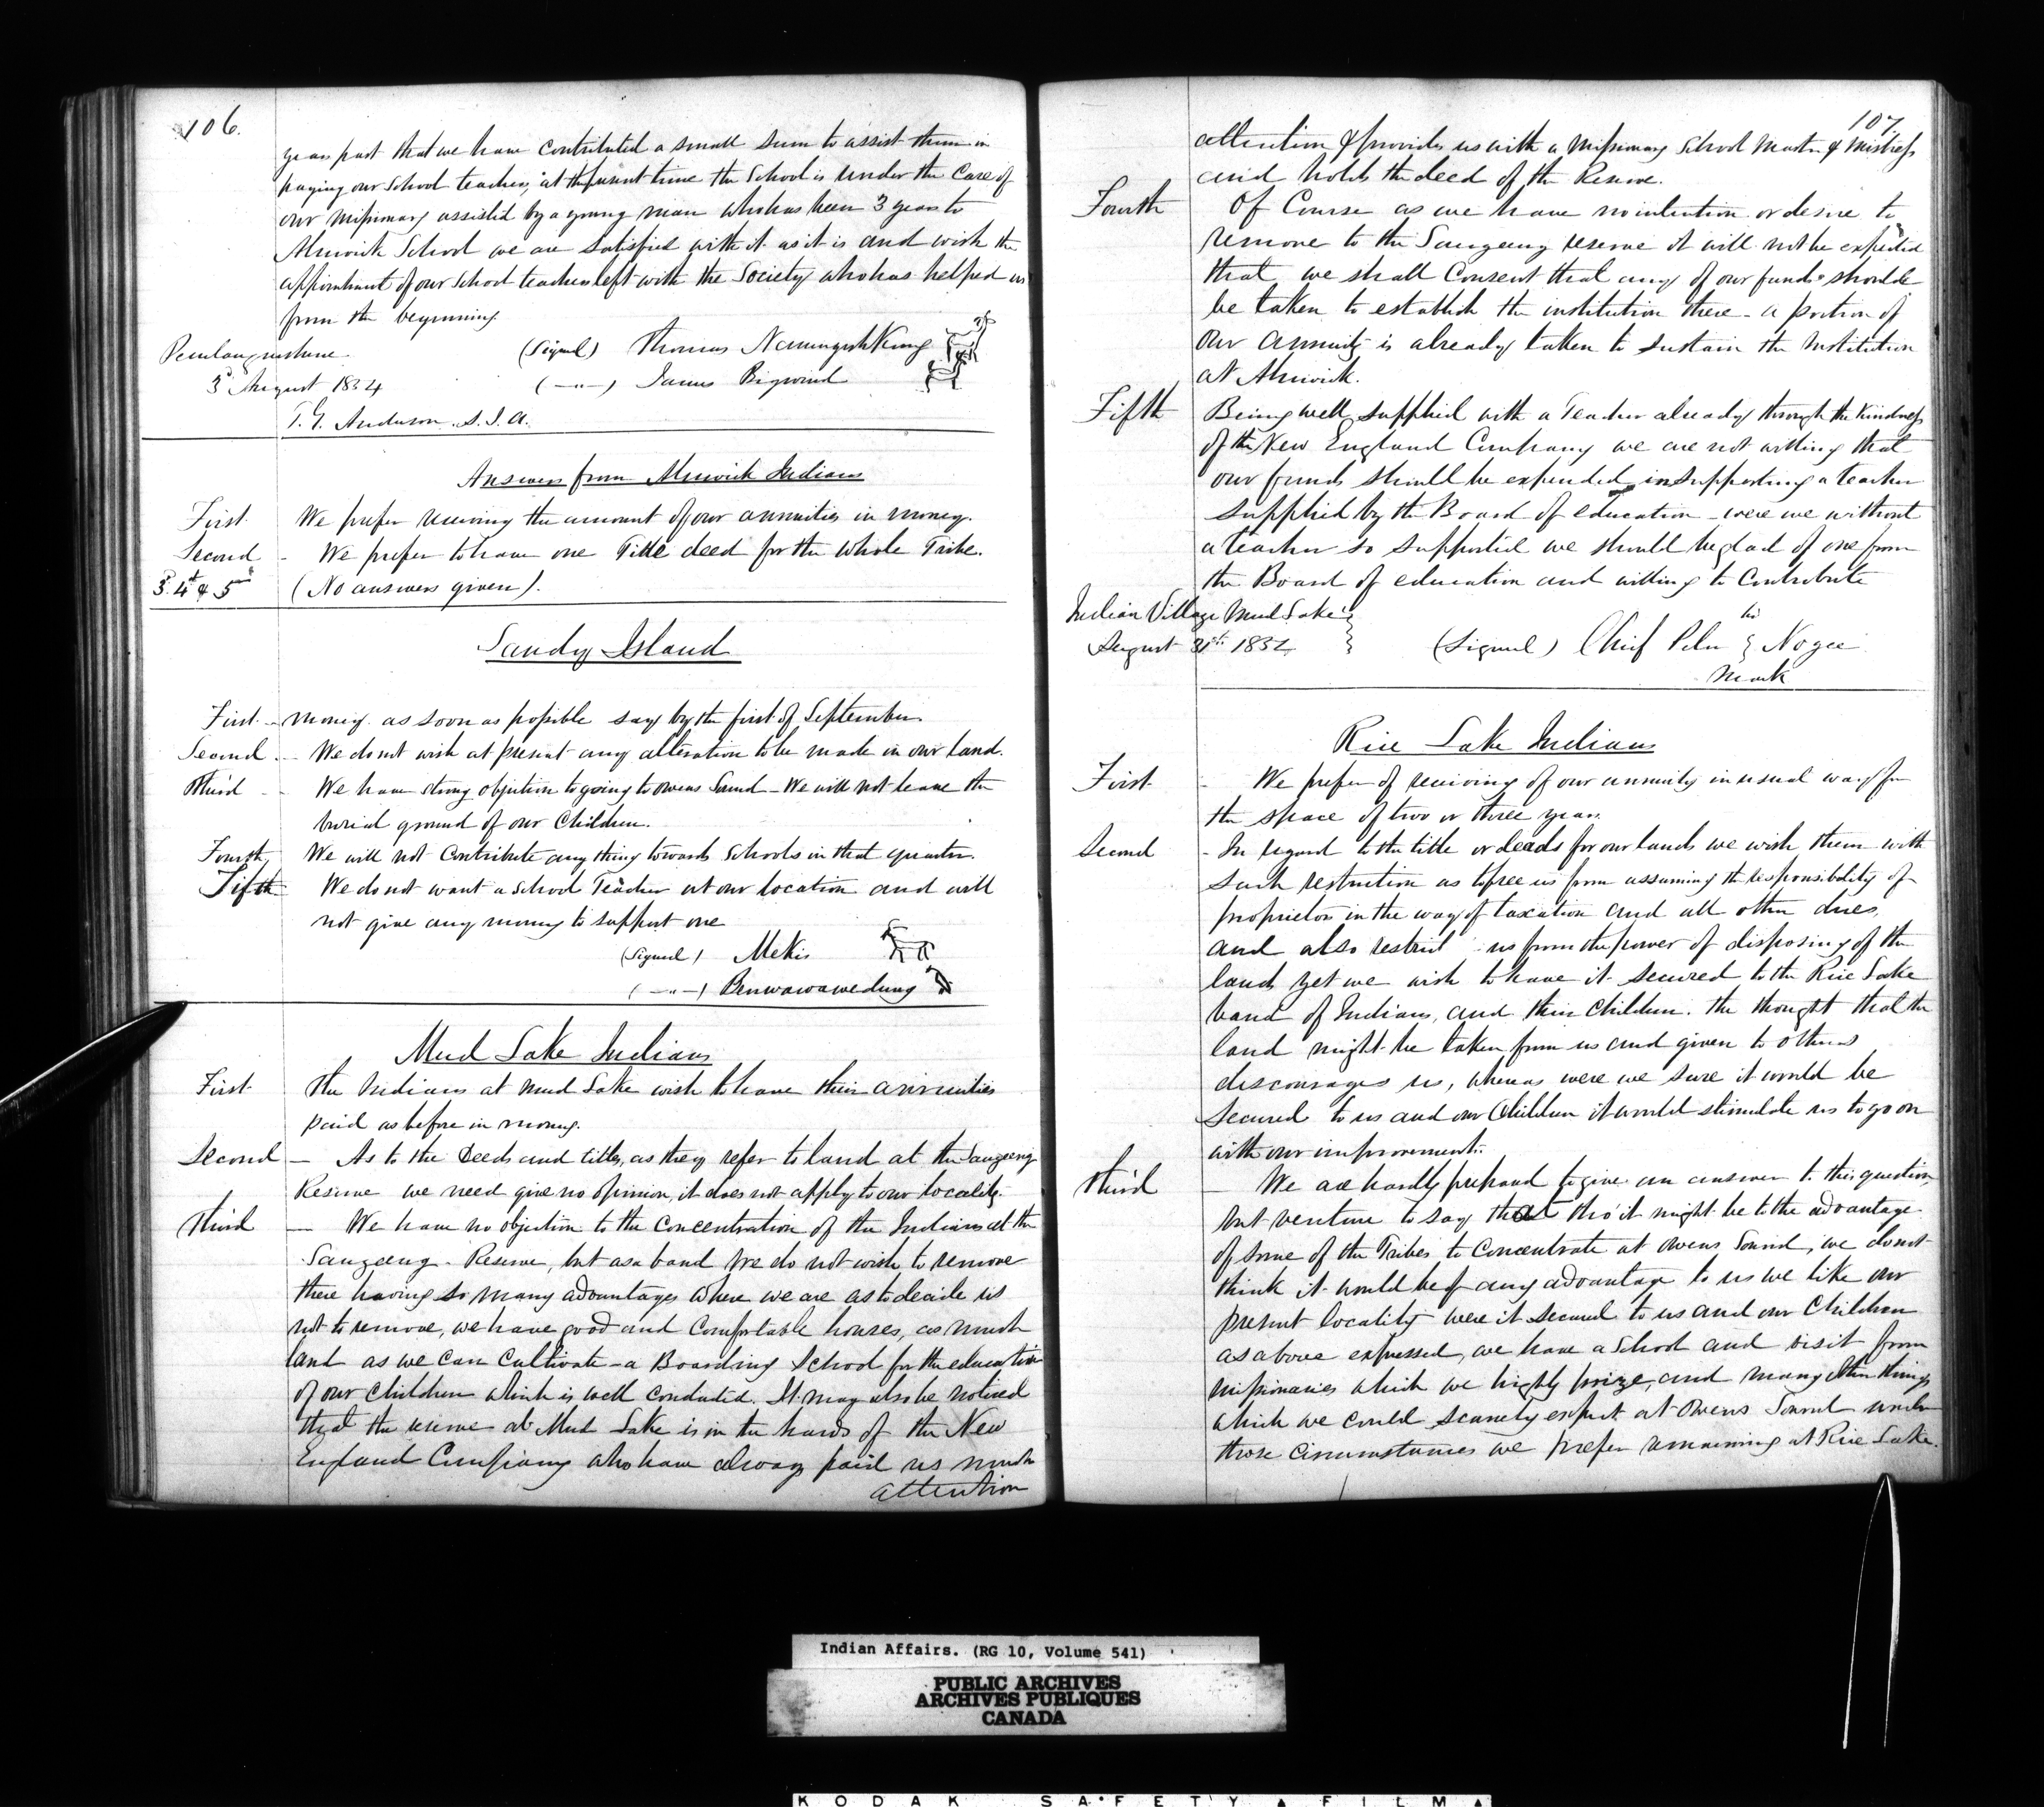 106.
years past that we have contributed a small sum to assist them in
paying our School teacher, at the present time the School is under the Care of
our Missionary assisted by a young man who has been 3 years to
Alnwick School we are satisfied with it as it is and wish the
appointment of our School teacher left with the Society who has helped us
from the beginning
Penetanguishene
(Signed) Thomas
3d August 1854
(-"-) James Bigwind
T. G. Anderson. S. I. A.
Answers from Alnwick Indians
First We prefer receiving the amount of our annuities in money.
Second - We prefer to have one Title deed for the whole Tribe.
3d 4th & 5th (No answers given).
Sandy Island
First - money as soon as possible say by the first of September.
Second - We do not wish at present any alteration to be made in our land.
Third - We have strong objection to going to Owens Sound - We will not leave the
burial ground of our Children.
Fourth We will not Contribute any thing towards Schools in that quarter.
Fifth We do not want a School Teacher at our location and will
not give any money to support one
(Signed) Mekis
(-"-) Penwawawedung
Mud Lake Indians
First The Indians at Mud Lake wish to have their annuities
paid as before in money.
Second - As to the Deeds and titles, as they refer to land at the Saugeeng
Reserve we need give no opinion, it does not apply to our locality.
Third - We have no objection to the Concentration of the Indians at the
Saugeeng Reserve, but as a band we do not wish to remove
there having so many advantages where we are as to decide us
not to remove, we have good and Comfortable houses, as much
land as we can Cultivate - a Boarding School for the education
of our Children which is well conducted. It may also be noticed
that the reserve at Mud Lake is in the hands of the New
England Company who have always paid us much
attention
107
attention & provides us with a Missionary School Master & Mistress
and holds the deed of the Reserve.
Fourth Of Course as we have no intention or desire to
remove to the Saugeeng reserve it will not be expected
that we shall Consent that any of our funds should
be taken to establish the institution there - a portion of
our annuity is already taken to sustain the Institution
at Alnwick.
Fifth Being well supplied with a Teacher already through the Kindness
of the New England Company we are not willing that
our funds should be expended in supporting a teacher
supplied by the Board of education - were we without
a teacher so supported we should be glad of one from
the Board of education and willing to Contribute
Indian Village Mud Lake
his
August 1854 (Signed) Chief Peter Nogee
Mark
Rice Lake Indians
First - We prefer of receiving of our annuity in usual way for
the space of two or three years.
Second - In regard to the title or deeds for our lands we wish them with
such restriction as to free us from assuming the responsibility of
proprietors in the way of taxation and all other dues,
and also restrict us from the power of disposing of the
land, yet we wish to have it secured to the Rice Lake
band of Indians, and their Children. the thought that the
land might be taken from us and given to others
discourages us, whereas were we sure it would be
secured to us and our Children it would stimulate us to go on
with our improvements.
Third - We are hardly prepared to give an answer to this question,
but venture to say that tho' it might be to the advantage
of some of the Tribes to Concentrate at Owens Sound, we do not
think it would be of any advantage to us we like our
present locality were it secured to us and our Children
as above expressed, we have a School and visit from
missionaries which we highly prize, and many other things
which we could scarcely expect at Owens Sound under
those circumstances we prefer remaining at Rice Lake.
Indian Affairs. (RG 10, Volume 541)
PUBLIC ARCHIVES
ARCHIVES PUBLIQUES
CANADA
KODAK SAFETY FILM